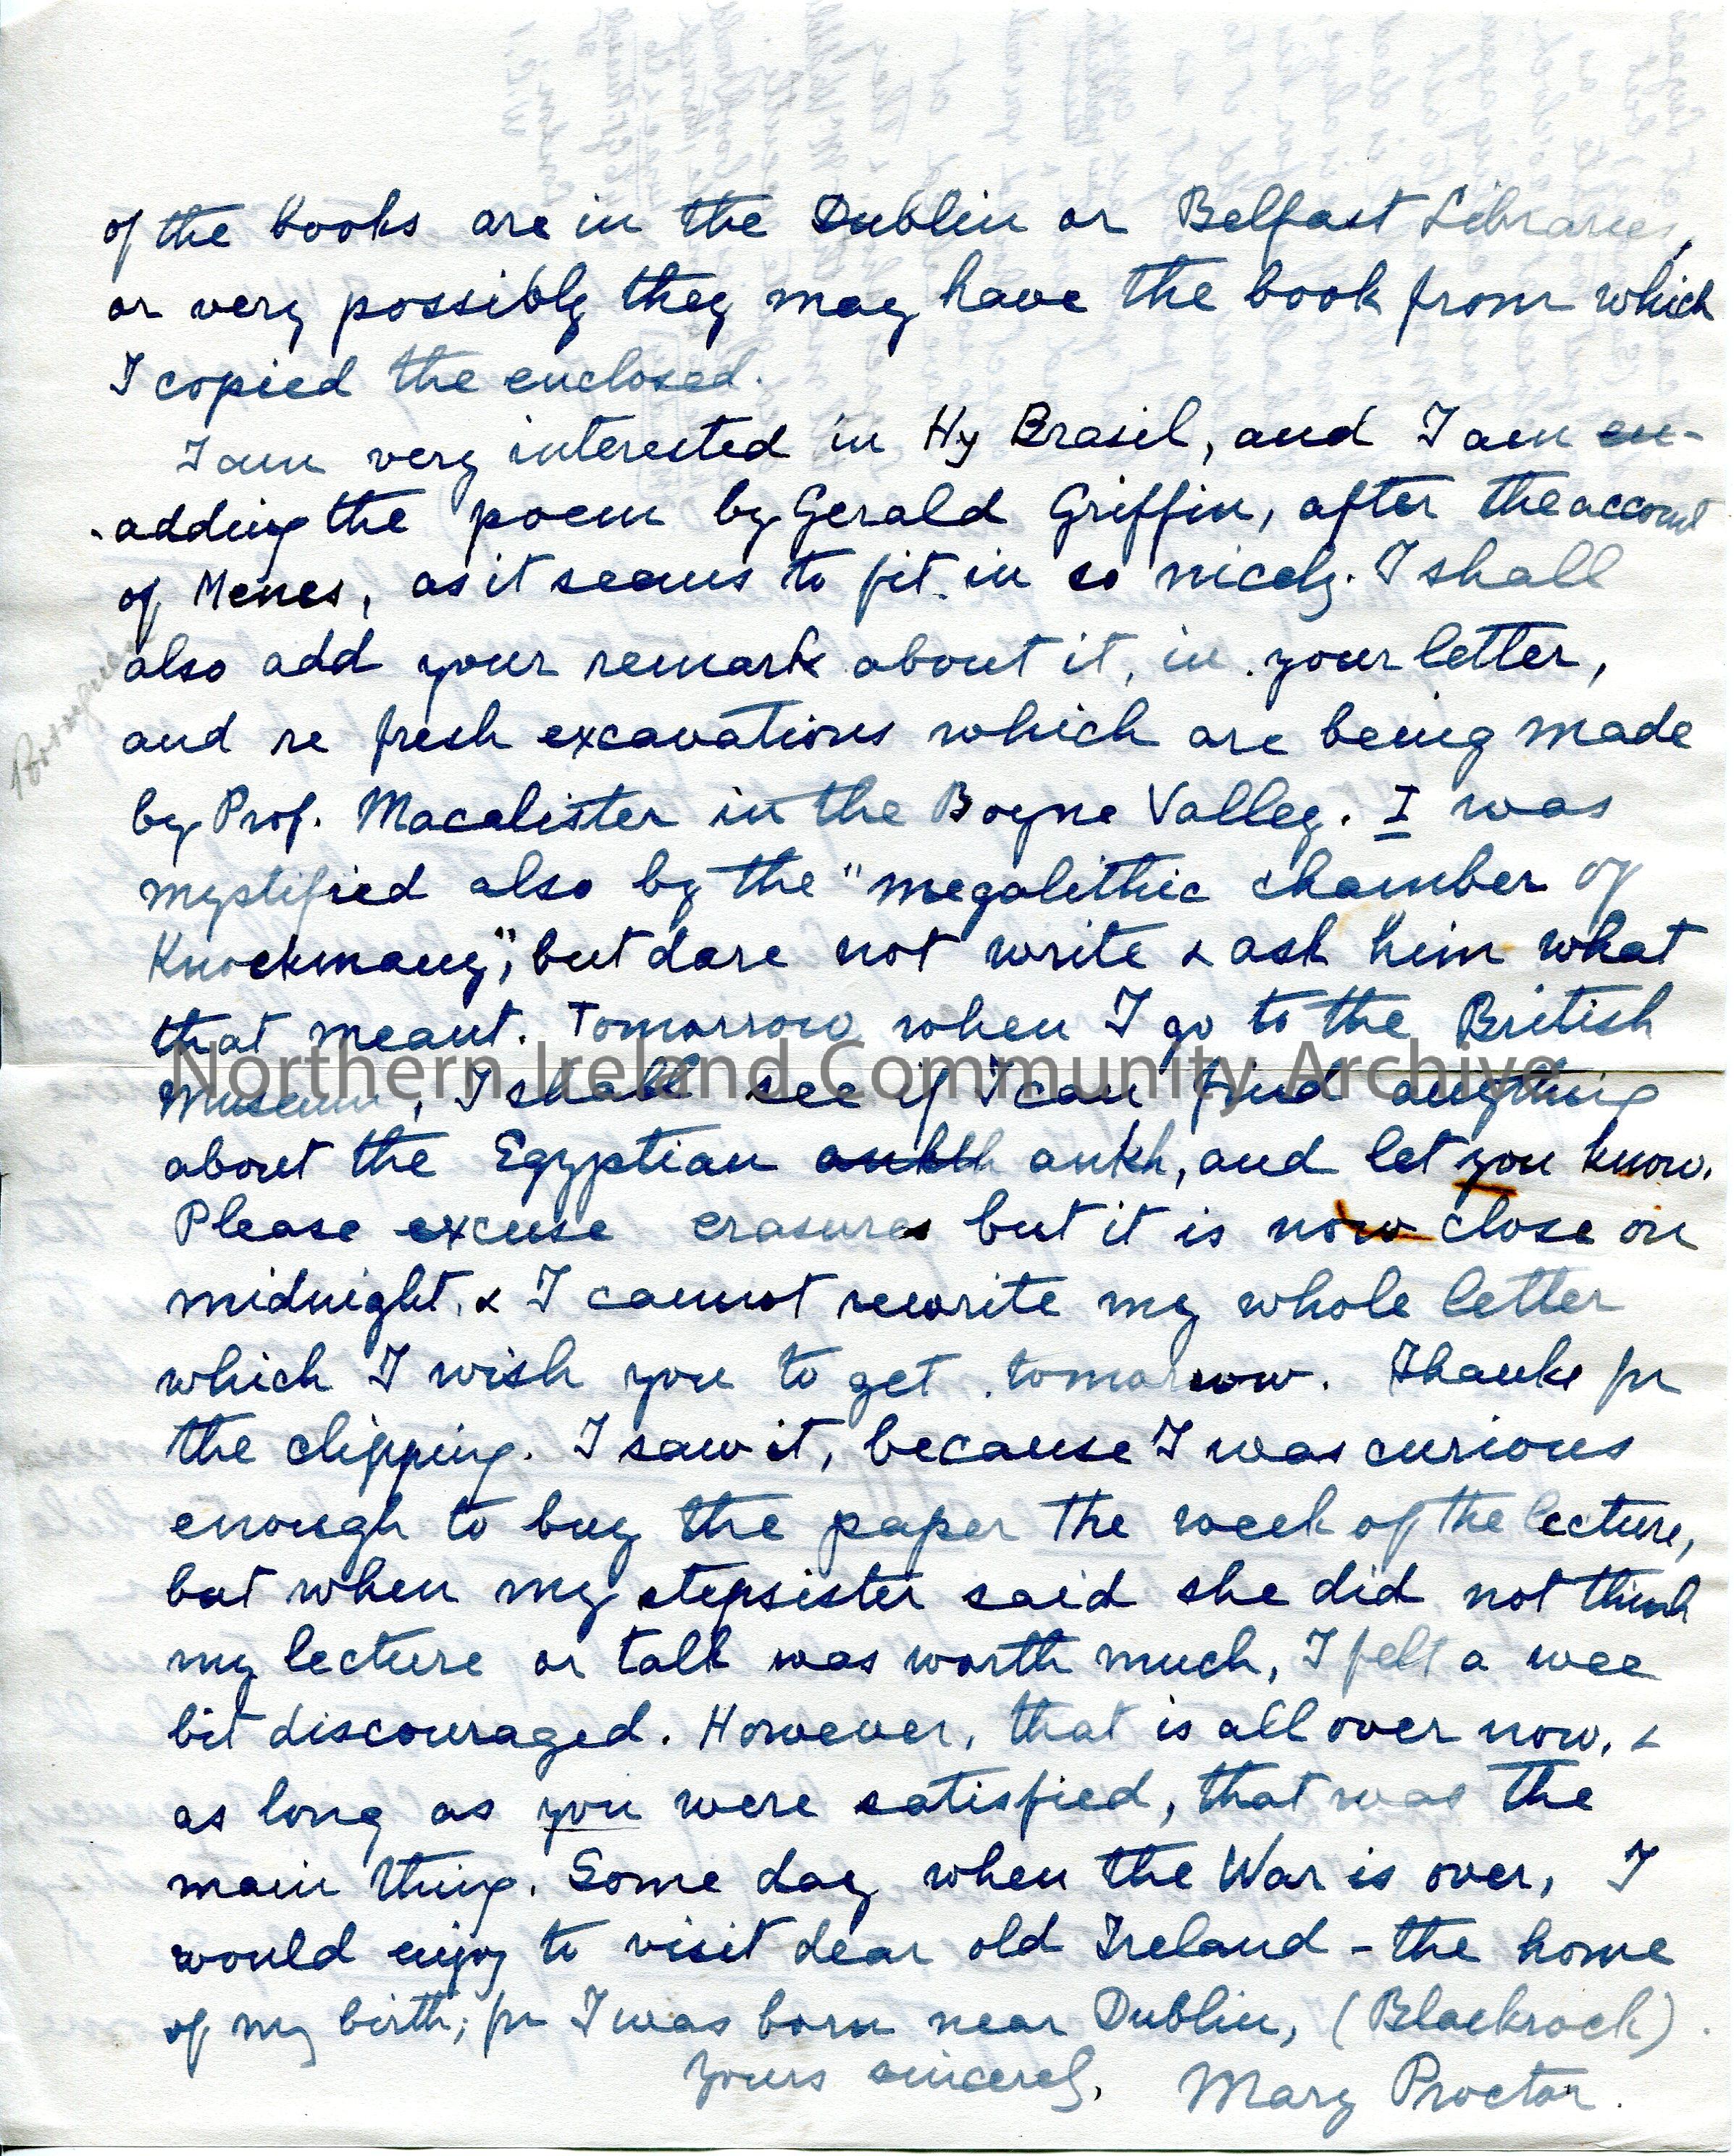 of the books are in the Dublin or Belfast Libraries,
or very possibly they may have the book from which
I copied the enclosed.
I am very interested in Hy Brasil, and I am en-
-adding the poem by Gerald Griffin, after the account
of Menes, as it seems to fit in so nicely. I shall
also add your remark about it, in your letter,
and re fresh excavations which are being made
by Prof. Macalister in the Boyne Valley. I was
mystified also by the "megalithic chamber of
Knockmany", but dare not write & ask him what
that meant. Tomorrow when I go to the British
Museum, I shall see if I can find anything
about the Egyptian ankh, and let you know.
Please excuse erasures but it is now close on
midnight, & I cannot rewrite my whole letter
which I wish you to get tomorrow. Thanks for
the clipping. I saw it, because I was curious
enough to buy the paper the week of the lecture,
but when my stepsister said she did not think
my lecture or talk was worth much, I felt a wee
bit discouraged. However, that is all over now, &
as long as you were satisfied, that was the
main thing. Some day when the War is over, I
would enjoy to visit dear old Ireland - the home
of my birth; for I was born near Dublin, (Blackrock).
Yours sincerely, Mary Proctor.
Northern Ireland Community Archive